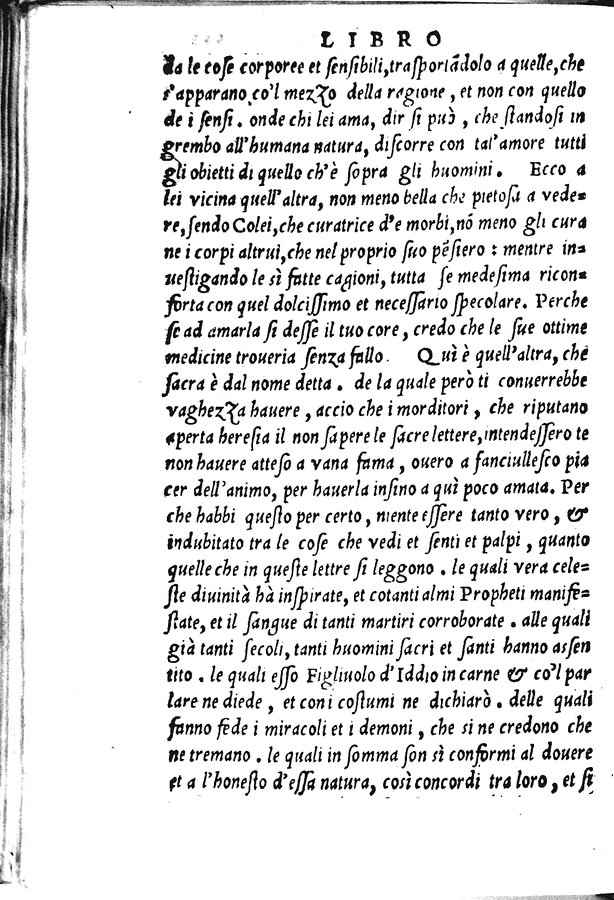 LIBRO
da le cose corporee et sensibili, trasportādolo a quelle, che
s'apparano, co'l mezzo della ragione, et non con quello
de i sensi. onde chi lei ama, dir si può, che standosi in
grembo all'humana natura, discorre con tal'amore tutti
gli obietti di quello ch'è sopra gli huomini. Ecco a
lei vicina quell'altra, non meno bella che pietosa a vede=
re, sendo Colei, che curatrice d'e morbi, nō meno gli cura
ne i corpi altrui, che nel proprio suo pēsiero : mentre in=
uestigando le sì fatte cagioni, tutta se medesima ricon=
forta con quel dolcissimo et necessario specolare. Perche
se ad amarla si desse il tuo core, credo che le sue ottime
medicine troueria senza fallo. Quì è quell'altra, che
sacra è dal nome detta. de la quale però ti conuerrebbe
vaghezza hauere, accio che i morditori, che riputano
aperta heresia il non sapere le sacre lettere, intendessero te
non hauere atteso a vana fama, ouero a fanciullesco pia
cer dell'animo, per hauerla insino a quì poco amata. Per
che habbi questo per certo, niente essere tanto vero, &
indubitato tra le cose che vedi et senti et palpi, quanto
quelle che in queste lettre si leggono. le quali vera cele=
ste diuinità hà inspirate, et cotanti almi Propheti manife=
state, et il sangue di tanti martiri corroborate. alle quali
già tanti secoli, tanti huomini sacri et santi hanno assen
tito. le quali esso Figliuolo d'Iddio in carne & co'l par
lare ne diede, et con i costumi ne dichiarò. delle quali
fanno fede i miracoli et i demoni, che si ne credono che
ne tremano. le quali in somma son sì conformi al douere
et a l'honesto d'essa natura, così concordi tra loro, et si